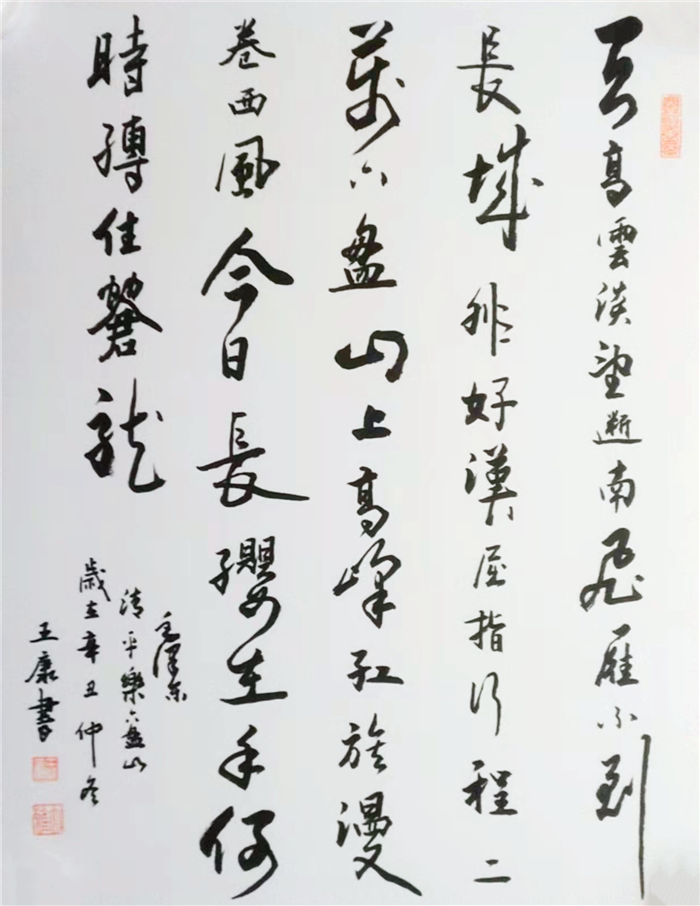 天高雲淡望斷南飛雁不到
長城非好漢屈指行程二
萬六盤山上高峰紅旗漫
卷西風今日長纓在手何
時縛住蒼龍
毛澤東
清平樂六盤山
歲在辛丑仲冬
王康書